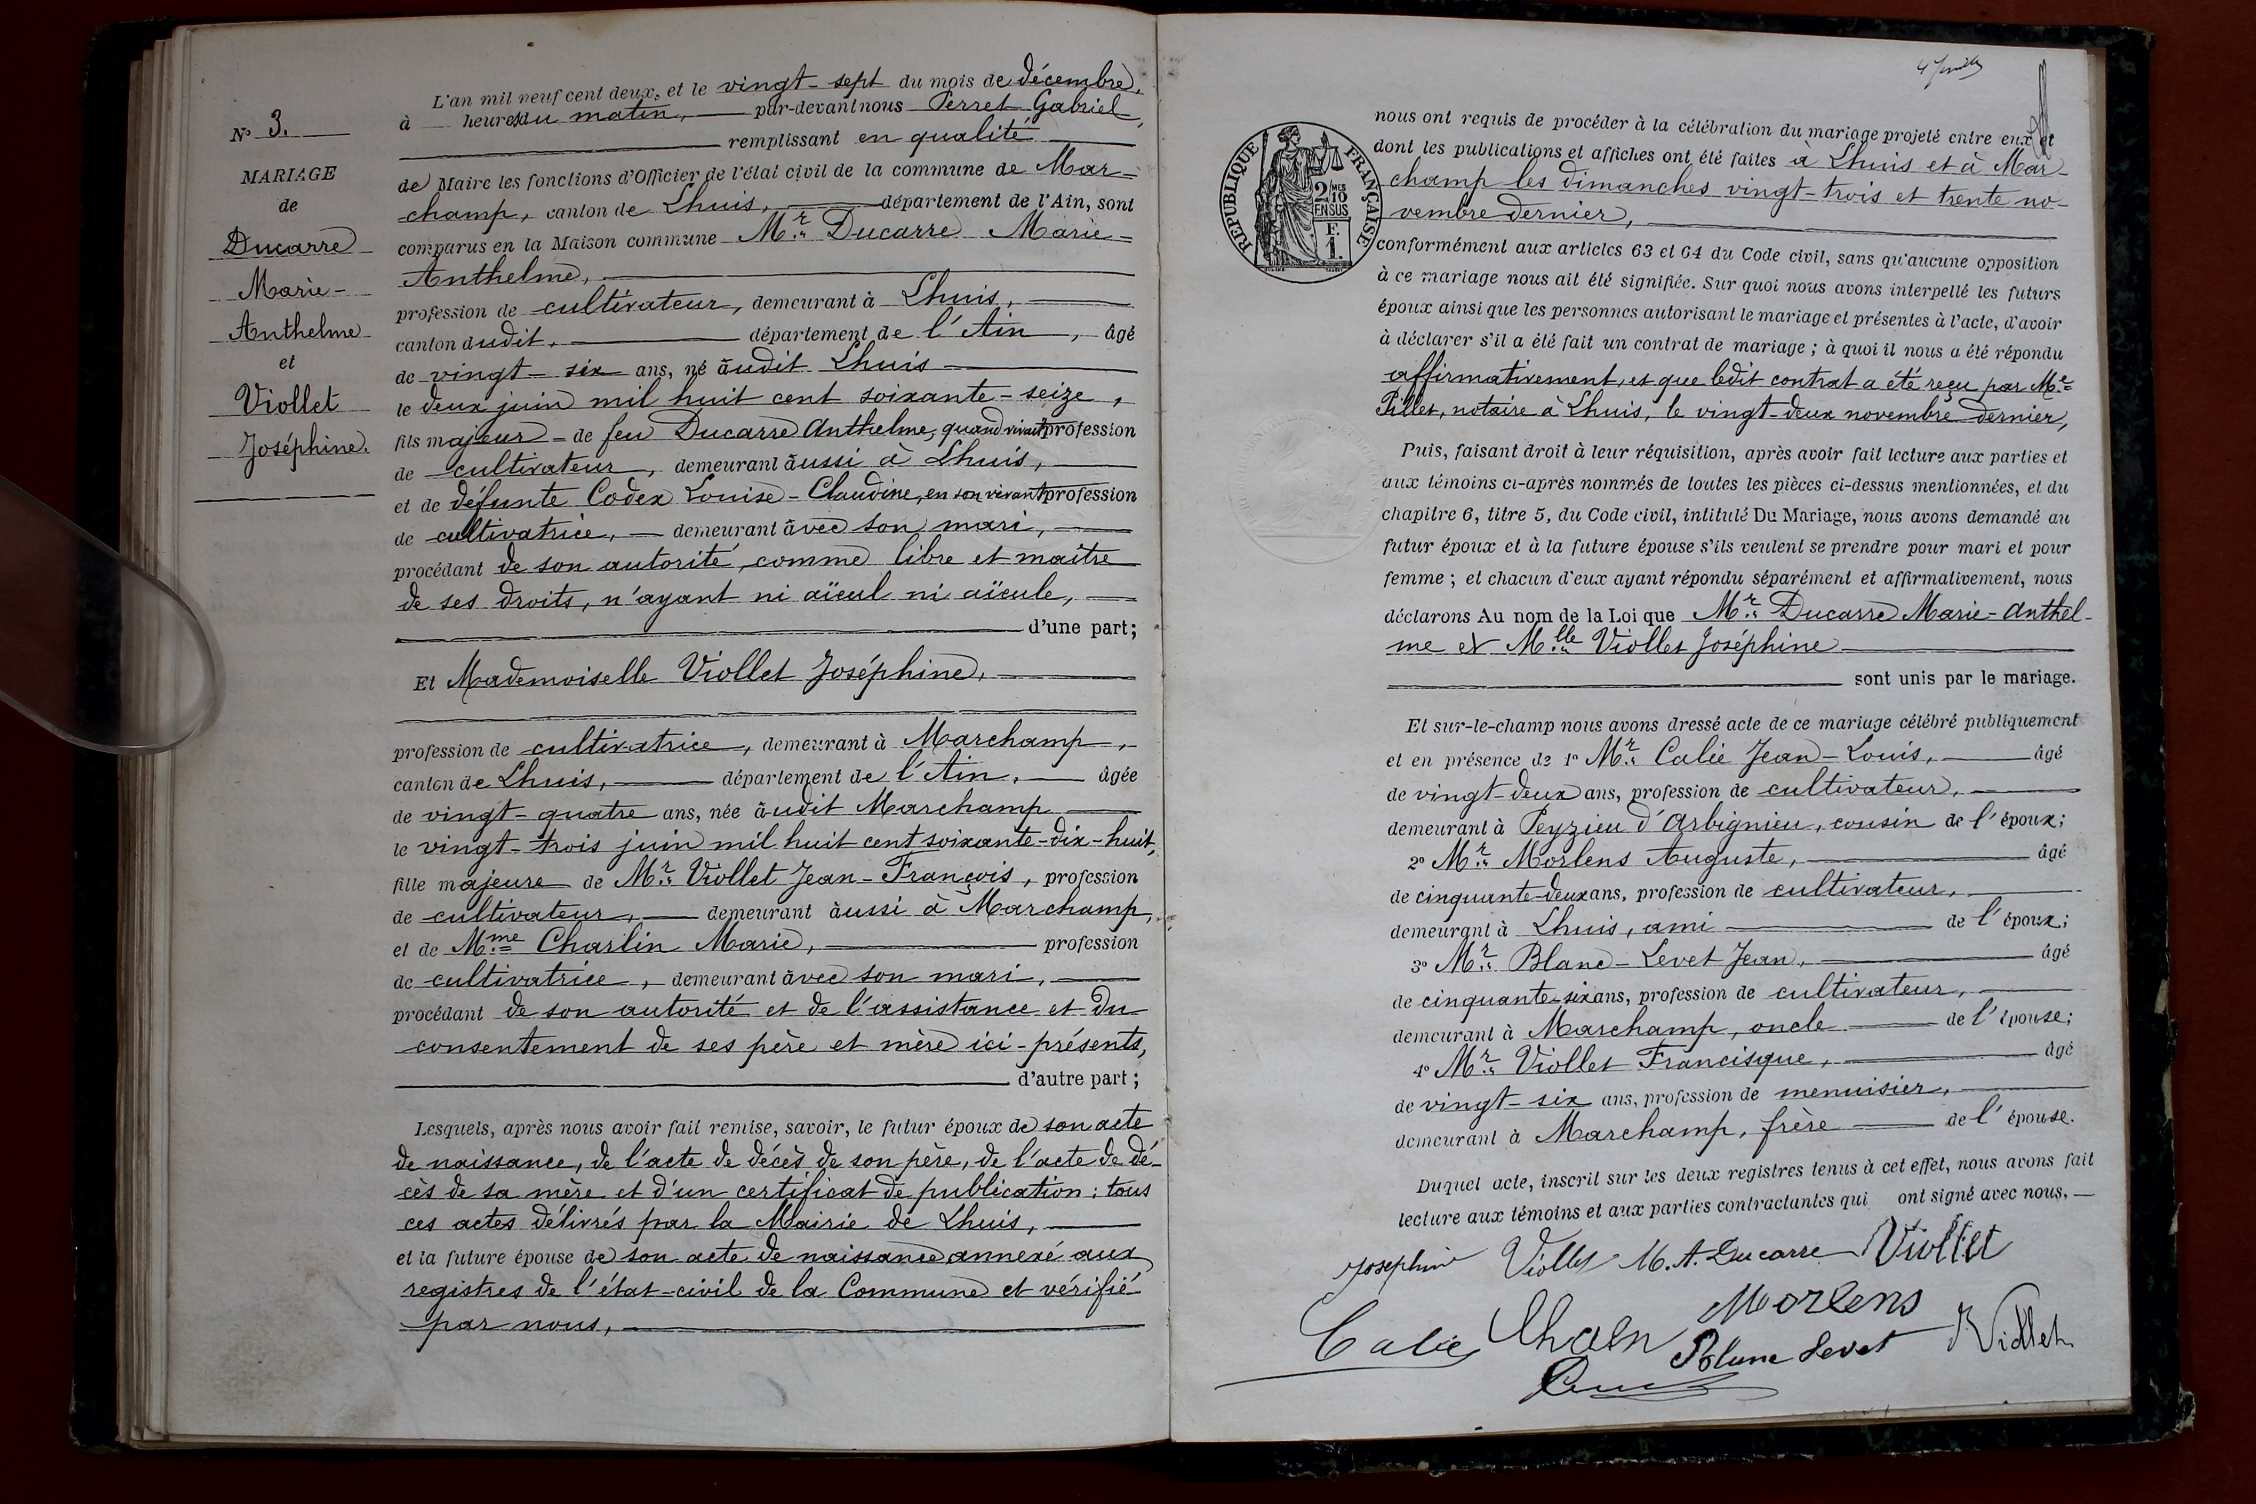 N° 3.
MARIAGE
de
Ducarre
Marie-
Anthelme
et
Viollet
Joséphine.
L'an mil neuf cent deux, et le vingt-sept du mois de décembre,
à heures du matin, par-devant nous Perret Gabriel,
remplissant en qualité
de Maire les fonctions d'Officier de l'état civil de la commune de Mar=
champ, canton de Lhuis, département de l'Ain, sont
comparus en la Maison commune Mr Ducarre Marie=
Anthelme,
profession de cultivateur, demeurant à Lhuis,
canton dudit, département de l'Ain, âgé
de vingt-six ans, né audit Lhuis
le deux juin mil huit cent soixante-seize,
fils majeur de feu Ducarre Anthelme, quand vivait profession
de cultivateur, demeurant aussi à Lhuis,
et de défunte Codex Louise-Claudine, en son vivant profession
de cultivatrice, demeurant avec son mari,
procédant de son autorité, comme libre et maître
de ses droits, n'ayant ni aïeul ni aïeule,
d'une part;
Et Mademoiselle Viollet Joséphine,
profession de cultivatrice, demeurant à Marchamp,
canton de Lhuis, département de l'Ain, âgée
de vingt-quatre ans, née audit Marchamp
le vingt-trois juin mil huit cent soixante-dix-huit,
fille majeure de Mr Viollet Jean-François, profession
de cultivateur, demeurant aussi à Marchamp,
et de Mme Charlin Marie, profession
de cultivatrice, demeurant avec son mari,
procédant de son autorité et de l'assistance et du
consentement de ses père et mère ici-présents,
d'autre part;
Lesquels, après nous avoir fait remise, savoir, le futur époux de son acte
de naissance, de l'acte de décès de son père, de l'acte de dé-
cès de sa mère et d'un certificat de publication; tous
ces actes délivrés par la Mairie de Lhuis,
et la future épouse de son acte de naissance annexé aux
registres de l'état-civil de la Commune et vérifié
par nous,
RÉPUBLIQUE FRANÇAISE
2/10 MES
EN SUS
F.
1.
nous ont requis de procéder à la célébration du mariage projeté entre eux et
dont les publications et affiches ont été faites à Lhuis et à Mar-
champ les dimanches vingt-trois et trente no-
vembre dernier,
conformément aux articles 63 et 64 du Code civil, sans qu'aucune opposition
à ce mariage nous ait été signifiée. Sur quoi nous avons interpellé les futurs
époux ainsi que les personnes autorisant le mariage et présentes à l'acte, d'avoir
à déclarer s'il a été fait un contrat de mariage; à quoi il nous a été répondu
affirmativement, et que ledit contrat a été reçu par Me
Pillet, notaire à Lhuis, le vingt-deux novembre dernier,
Puis, faisant droit à leur réquisition, après avoir fait lecture aux parties et
aux témoins ci-après nommés de toutes les pièces ci-dessus mentionnées, et du
chapitre 6, titre 5, du Code civil, intitulé Du Mariage, nous avons demandé au
futur époux et à la future épouse s'ils veulent se prendre pour mari et pour
femme; et chacun d'eux ayant répondu séparément et affirmativement, nous
déclarons Au nom de la Loi que Mr Ducarre Marie-Anthel-
me et Mlle Viollet Joséphine
sont unis par le mariage.
Et sur-le-champ nous avons dressé acte de ce mariage célébré publiquement
et en présence de 1° Mr Calie Jean-Louis, âgé
de vingt-deux ans, profession de cultivateur,
demeurant à Peyzieu d'Arbignieu, cousin de l'époux;
2° Mr Morlens Auguste, âgé
de cinquante-deux ans, profession de cultivateur,
demeurant à Lhuis, ami de l'époux;
3° Mr Blanc-Levet Jean, âgé
de cinquante-six ans, profession de cultivateur,
demeurant à Marchamp, oncle de l'épouse;
4° Mr Viollet Francisque, âgé
de vingt-six ans, profession de menuisier,
demeurant à Marchamp, frère de l'épouse.
Duquel acte, inscrit sur les deux registres tenus à cet effet, nous avons fait
lecture aux témoins et aux parties contractantes qui ont signé avec nous,
Josephine Viollet M. A. Ducarre Viollet
Morlens
Calie
Blanc Levet Viollet